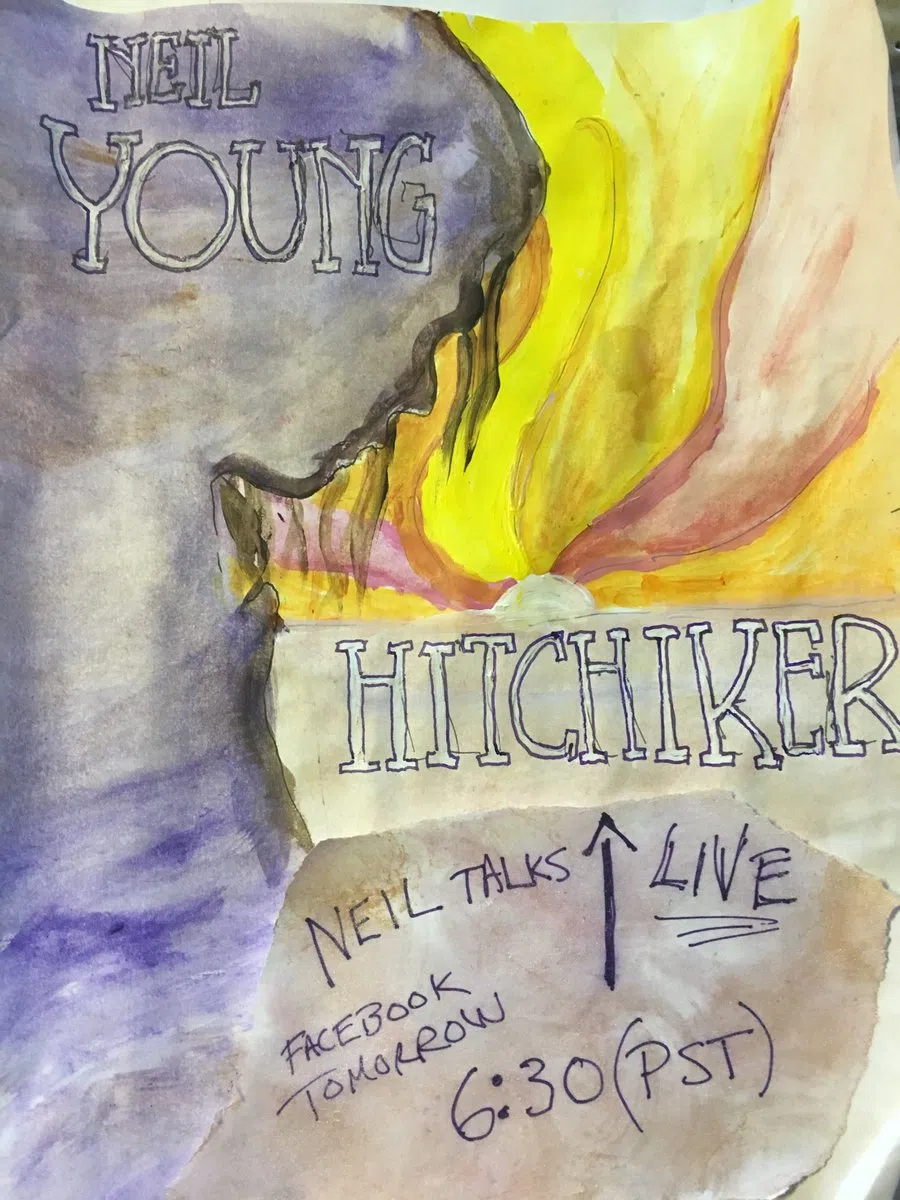 NEIL
YOUNG
HITCHIKER
NEIL TALKS LIVE
FACEBOOK
TOMORROW
6:30 (PST)